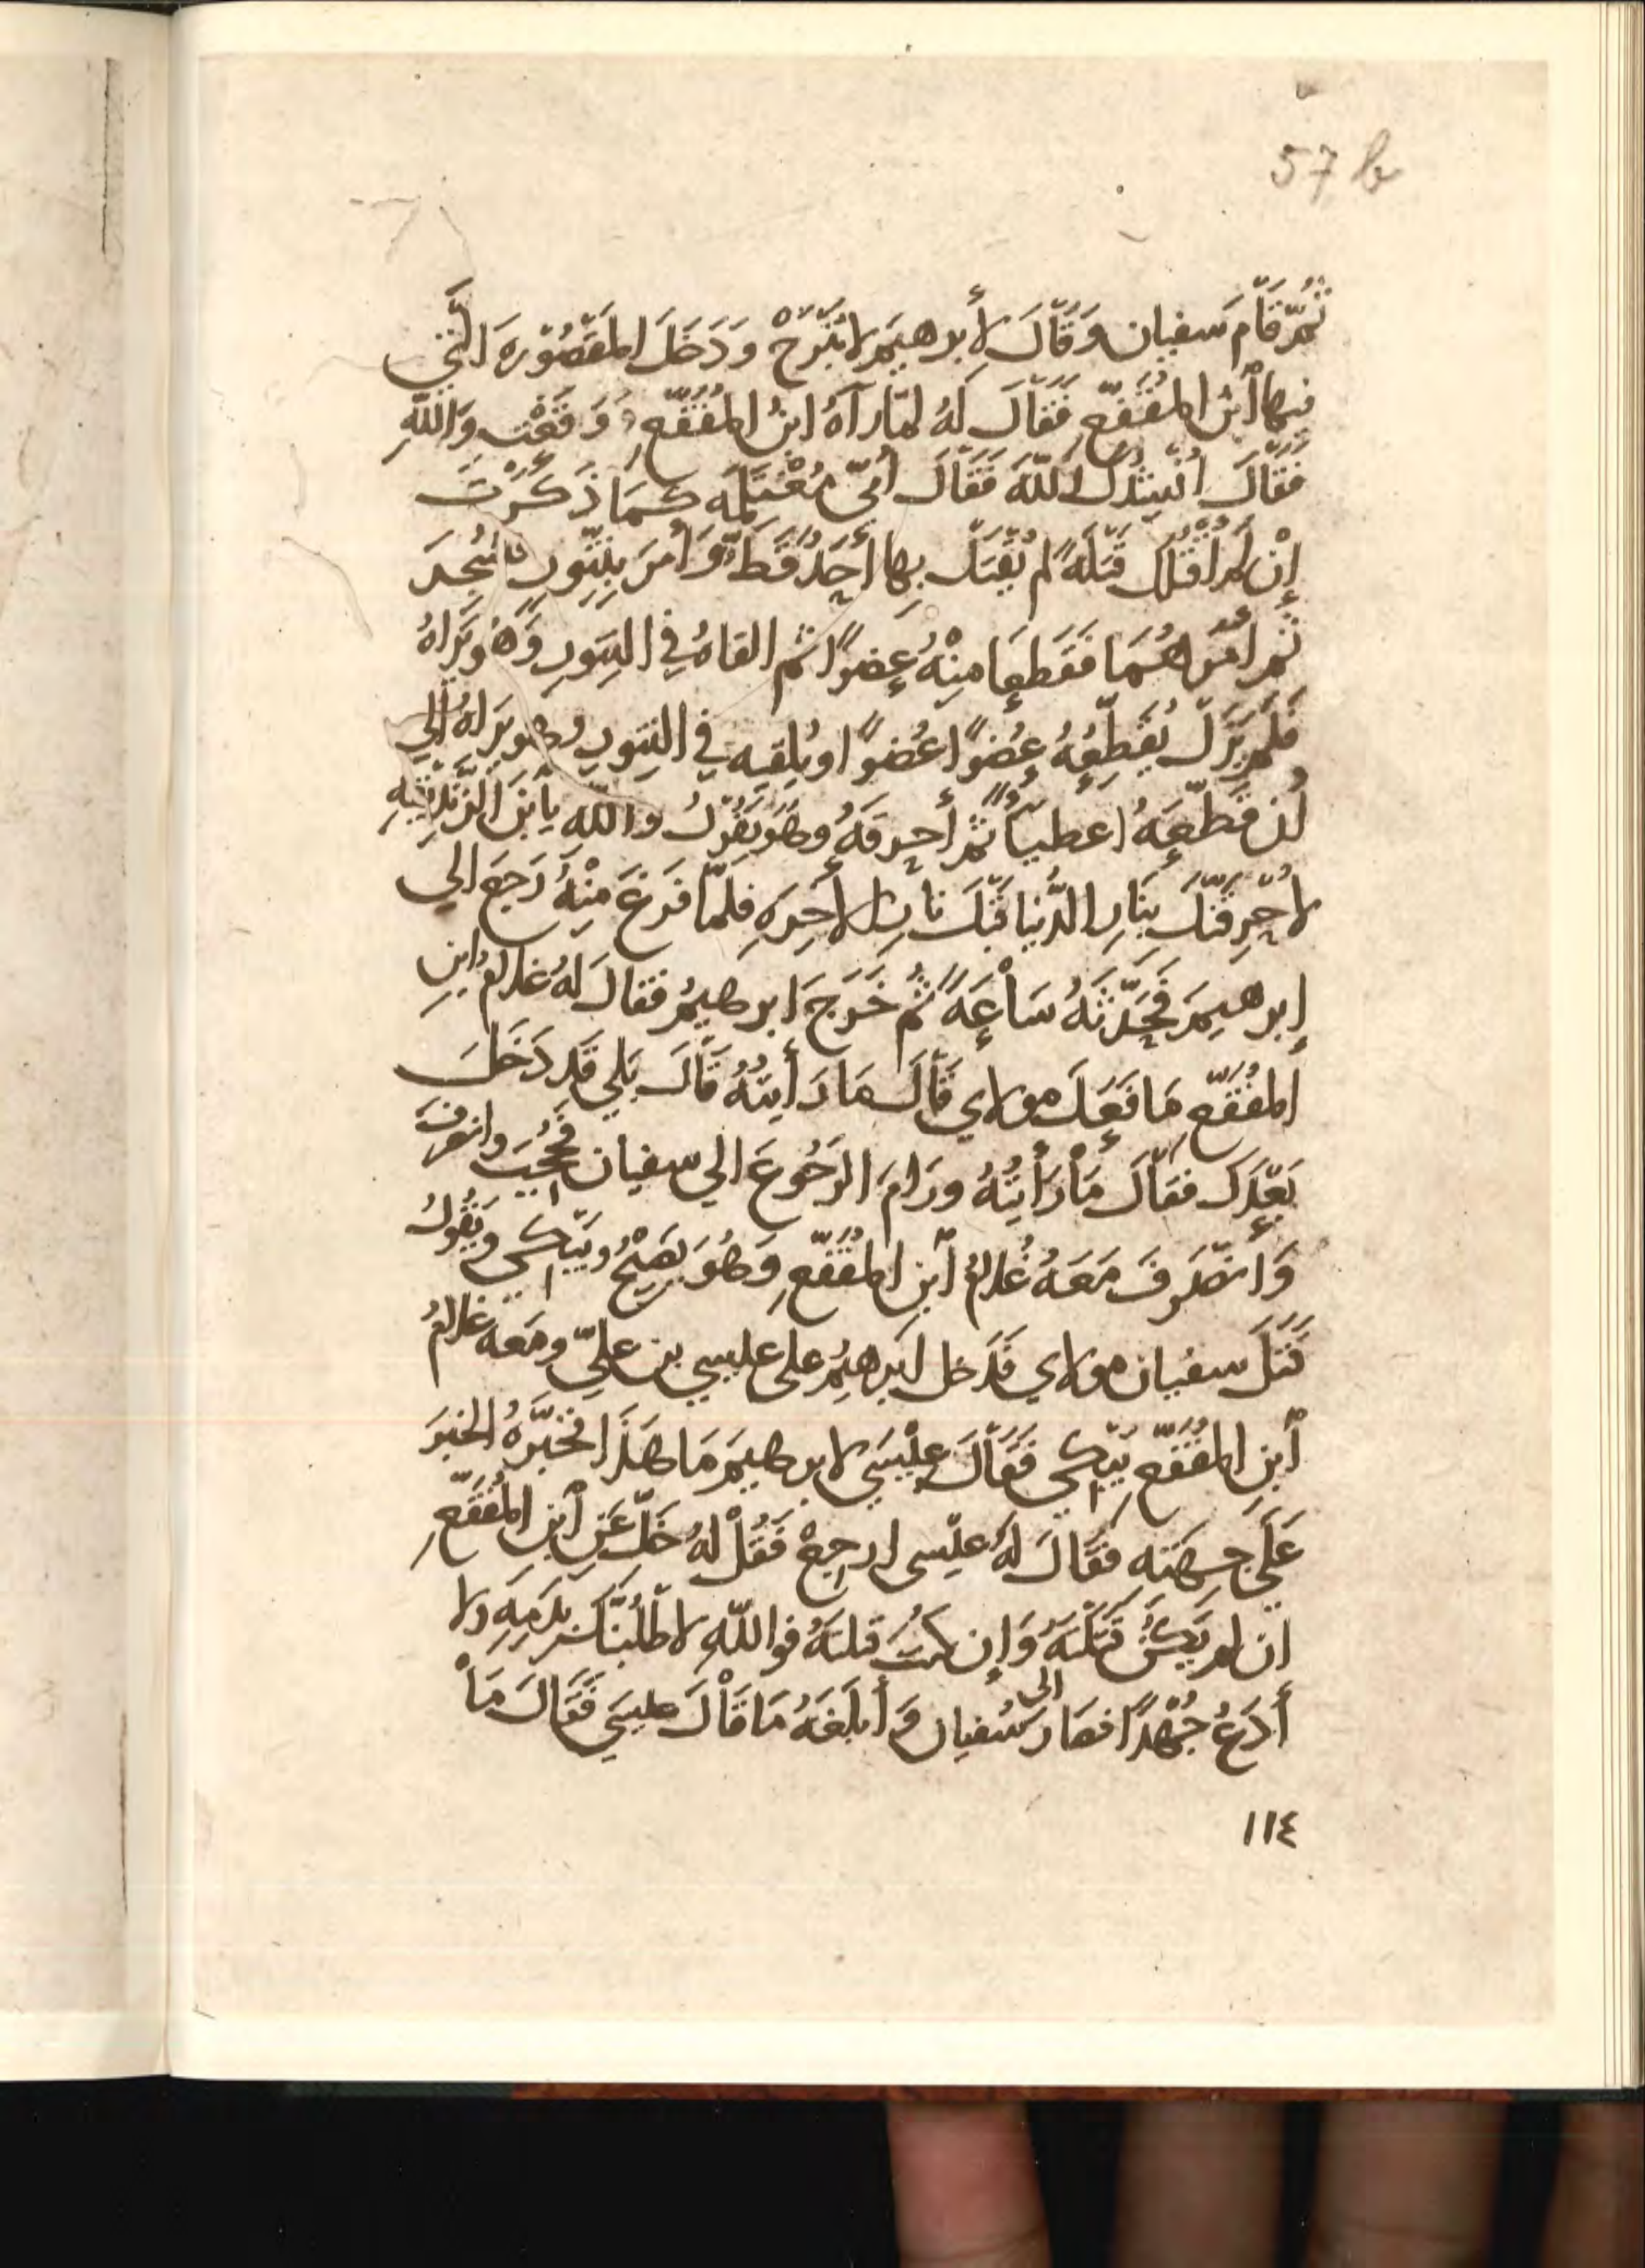 57 b
ثُمَّ قَامَ سفيان وَقَالَ لِأبرهيمَ لا تَبْرَحْ وَدَخَلَ المَقْصُورَةَ الَّتِي
فيها ابْنُ المقَفَّعِ فَقَالَ لَهُ لمّا رآهُ ابْنُ المُقَفَّعِ وَقَعْتَ وَاللهِ
فَقَالَ أنْشُدُكَ اللهَ فَقَالَ أُمِّي مُغْتَلِمَه كَمَا ذَكَرْتَ
إِنْ لَمْ أقْتُلْكَ قَتْلَةً لم يُقْتَل بِها أحَدٌ قَطُّ وَأَمَرَ بِتَنّورٍ فَسُجِرَ
ثم أمَرَهُمَا فَقَطعَا مِنْهُ عُضوًا ثم القاهُ في التَنّورِ وَهُوَ يَرَاهُ
فَلَمْ يَزَل يُقَطِّعُهُ عُضوًا عُضوًا ويُلقيه في التنّورِ وهو يَرَاهُ إلي
أن قَطَّعَهُ اعضاً ثُمَّ أحرقَهُ وهُوَ يَقُولُ والله يا ابْنَ الزِّنْدِيقَيه
لاُحْرِقَنَّكَ بِنَارِ الدُّنيا قَبْلَ نارِ الاخِرَهِ فلمّا فَرَغَ مِنْهُ رَجَعَ الي
إبرهيمَ فَحَدَّثَهُ سَاعَةً ثُمَّ خَرَجَ ابرهيمُ فقالَ لهُ غلامُ ابنِ
المُقَفَّعِ مَا فَعَلَ مولاي قَالَ مَا رَأيتُهُ قَالَ بَلي قَد دَخَلَ
بَعْدَكَ فقَالَ مَا رَأيتُهُ ورَامَ الرَجُوعَ الي سفيان فَحُجِبَ وانصرفَ
وَانصَرَفَ مَعَهُ غُلامُ ابنِ المُقَفَّعِ وَهُوَ يَصِيْحُ ويَبْكِي وَيَقُولُ
قَتَلَ سفيان مولاي فَدَخل ابرهِيمُ على عليسي بن عليّ ومَعه غلامُ
ابنِ المُقَفَّعِ يَبْكِي فَقَالَ عِيْسَي لابرهيمَ مَا هَذَا فخَبَّرَهُ الخبَرَ
عَلَي جِهَتِه فقَالَ لَهُ عِيْسى ارجِعْ فَقُلْ لهُ خَلِّ عَنِ ابنِ المُقَفَّعِ
ان لم يَكُنْ قَتَلْتَهُ وَإِن كُنتَ قتلتَهُ فواللهِ لاطْلُبَنَّكَ بدَمِهِ ولا
أدَعُ جُهْدًا فصَارَ الى سُفيان وَأبلَغَهُ مَا قَالَ عيسَي فَقَالَ مَا
١١٤